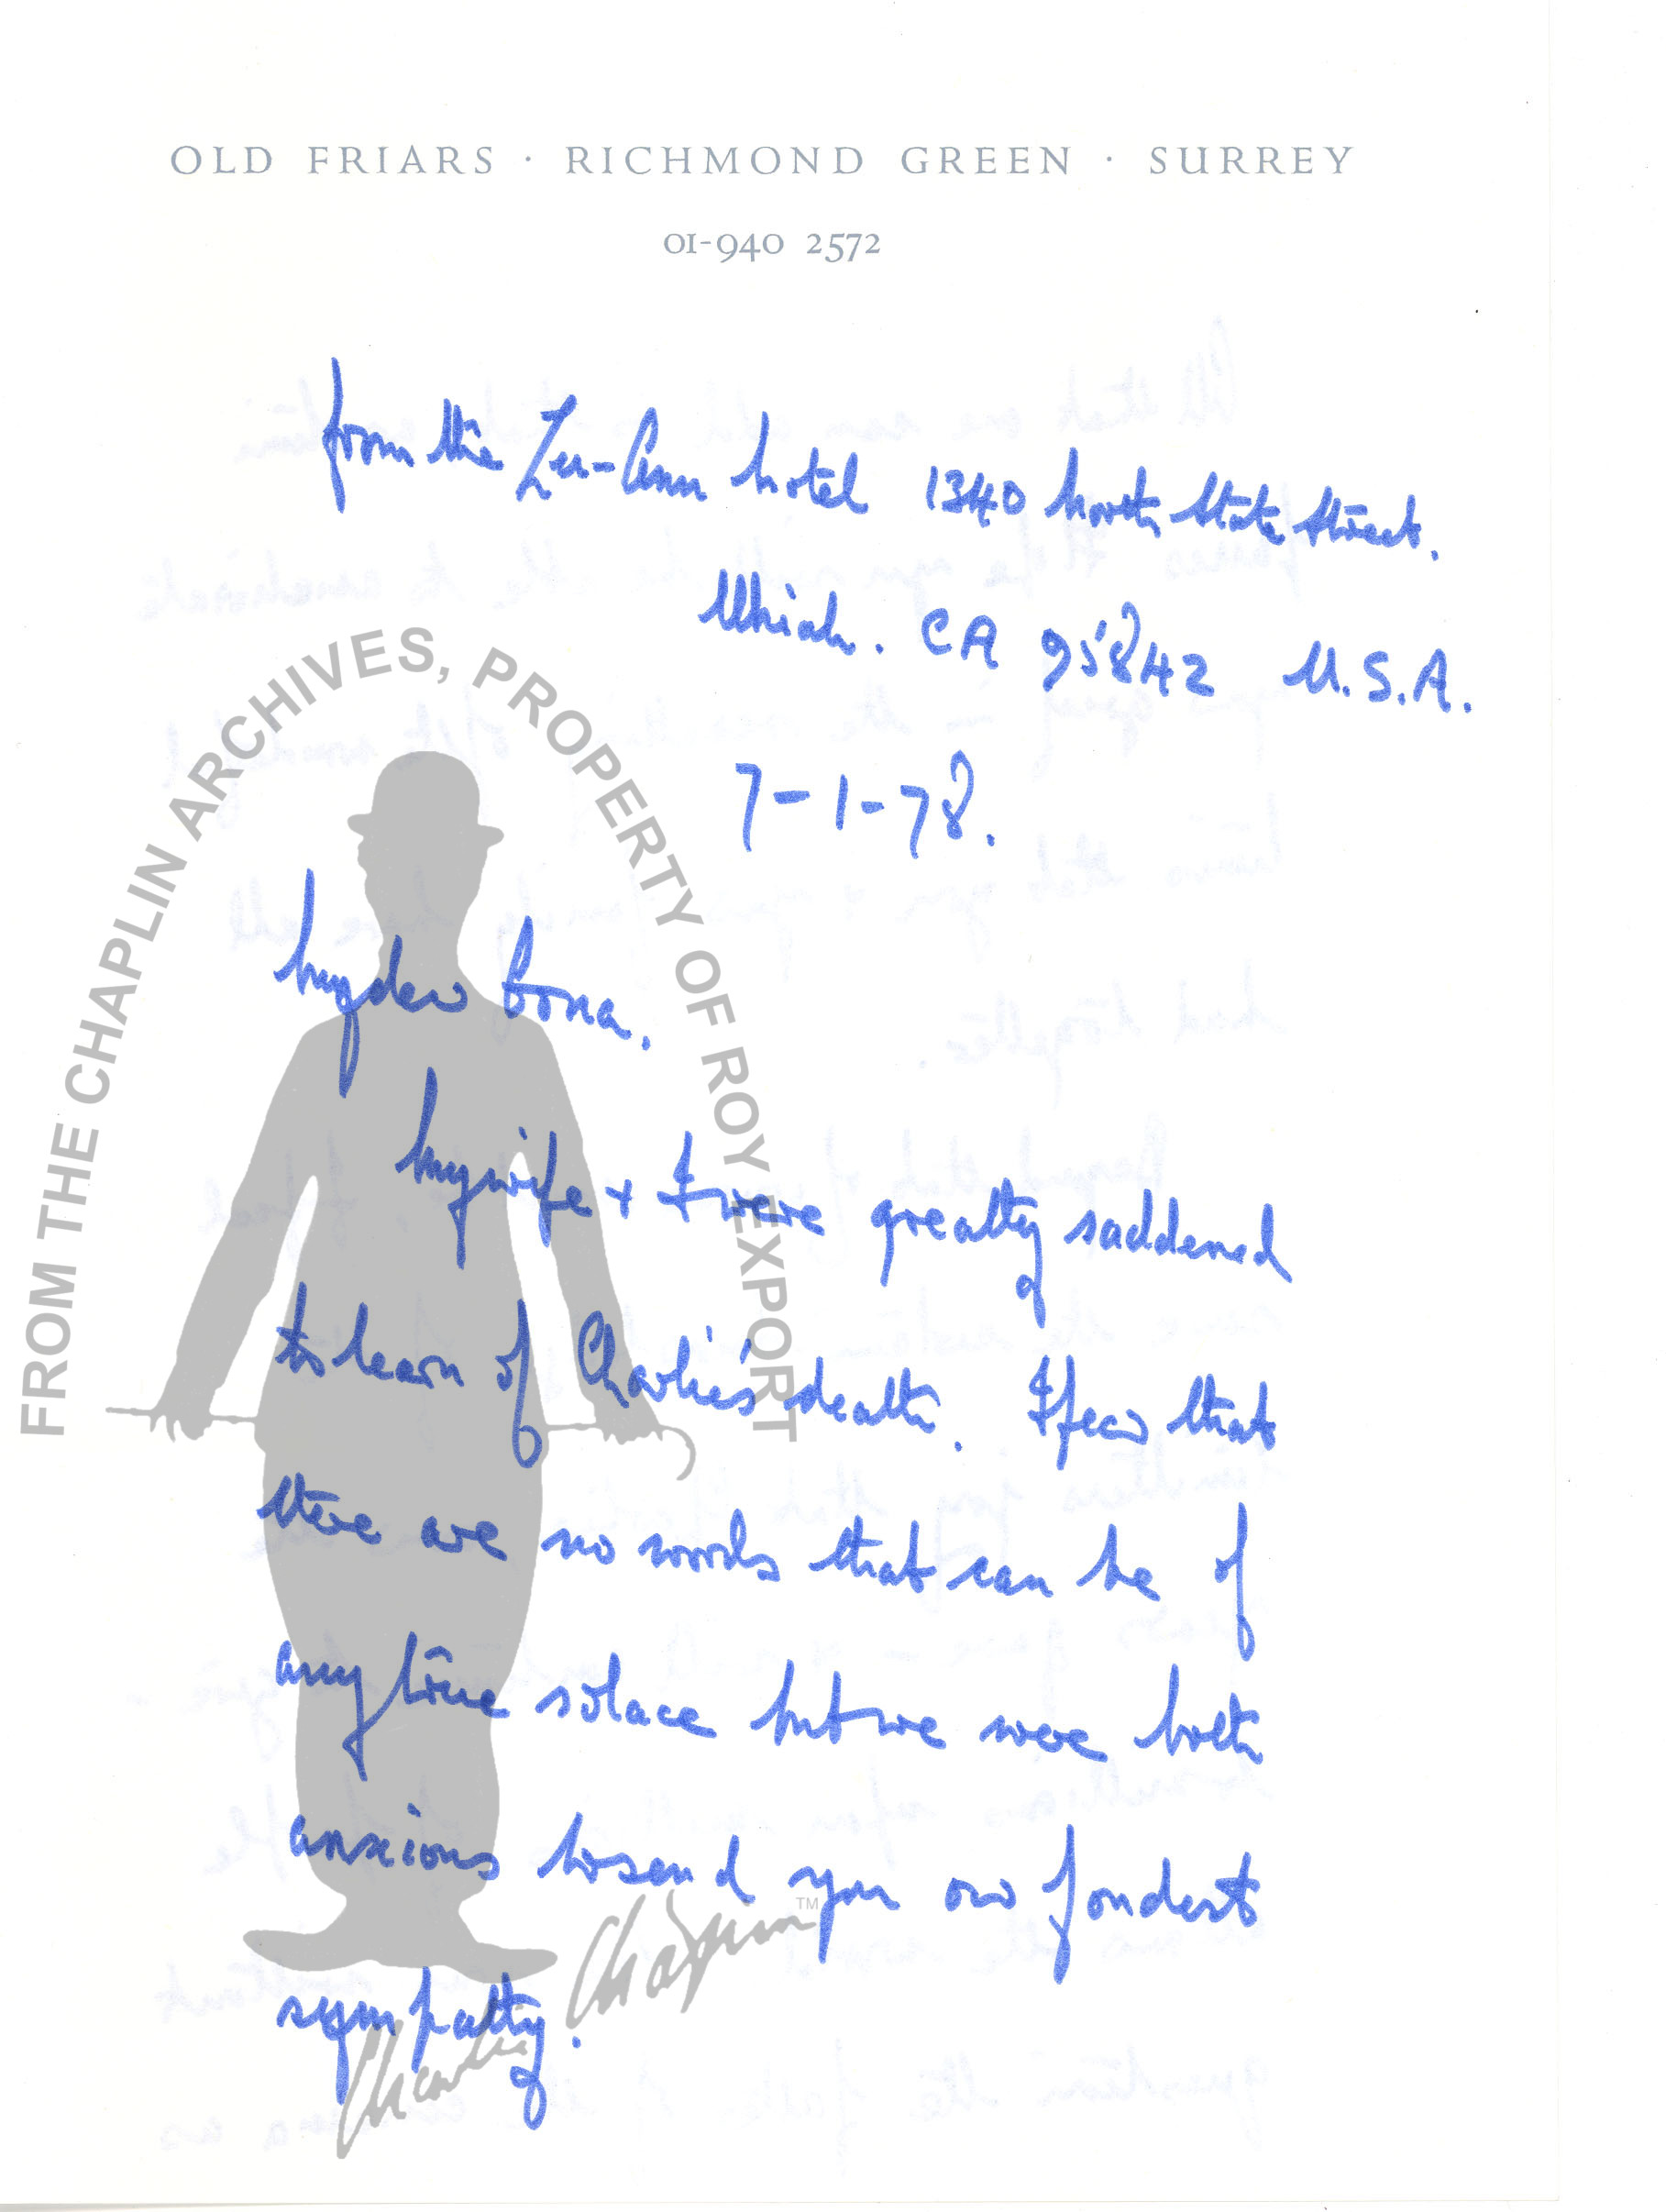 OLD FRIARS · RICHMOND GREEN · SURREY
01-940 2572
from the Lu-Ann Motel 1340 North State Street.
Ukiah. CA 95842 U.S.A.
7-1-78.
My dear Oona.
My wife + I were greatly saddened
to learn of Charlie's death. I fear that
there are no words that can be of
any true solace but we were both
anxious to send you our fondest
sympathy.
FROM THE CHAPLIN ARCHIVES, PROPERTY OF ROY EXPORT
Charlie Chaplin™